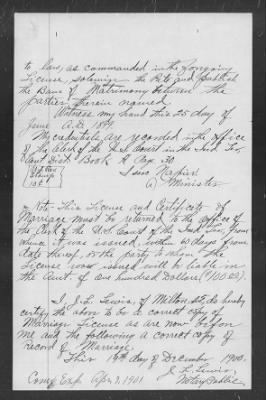 to law, as commanded in the foregoing
License, solemnize the Rite and publish
the Banns of Matrimony between the
parties therein named.
Witness my hand this 25 day of
June A.D. 189
My credentials are recorded in the office
of the Clerk of the U.S. Court in the Ind. Ter.
Dist. Book A Page 20
Stamp
10¢
Napier
Minister
Note This License and Certificate of
Marriage must be returned to the office of
the Clerk of the U.S. Court of the Ind. Ter. from
whence it was issued, within 60 days from
date thereof, or the party to whom the
License was issued will be liable in
the Amt. of One hundred Dollars ($100.00).
I, J. L. Lewis, of Milton, do hereby
certify the above to be a correct copy of
Marriage License as are now before
me and the following a correct copy of
record of Marriage.
This day of December 1900.
J. L. Lewis,
Notary Public
Comg Exp. Apr. 9, 1901